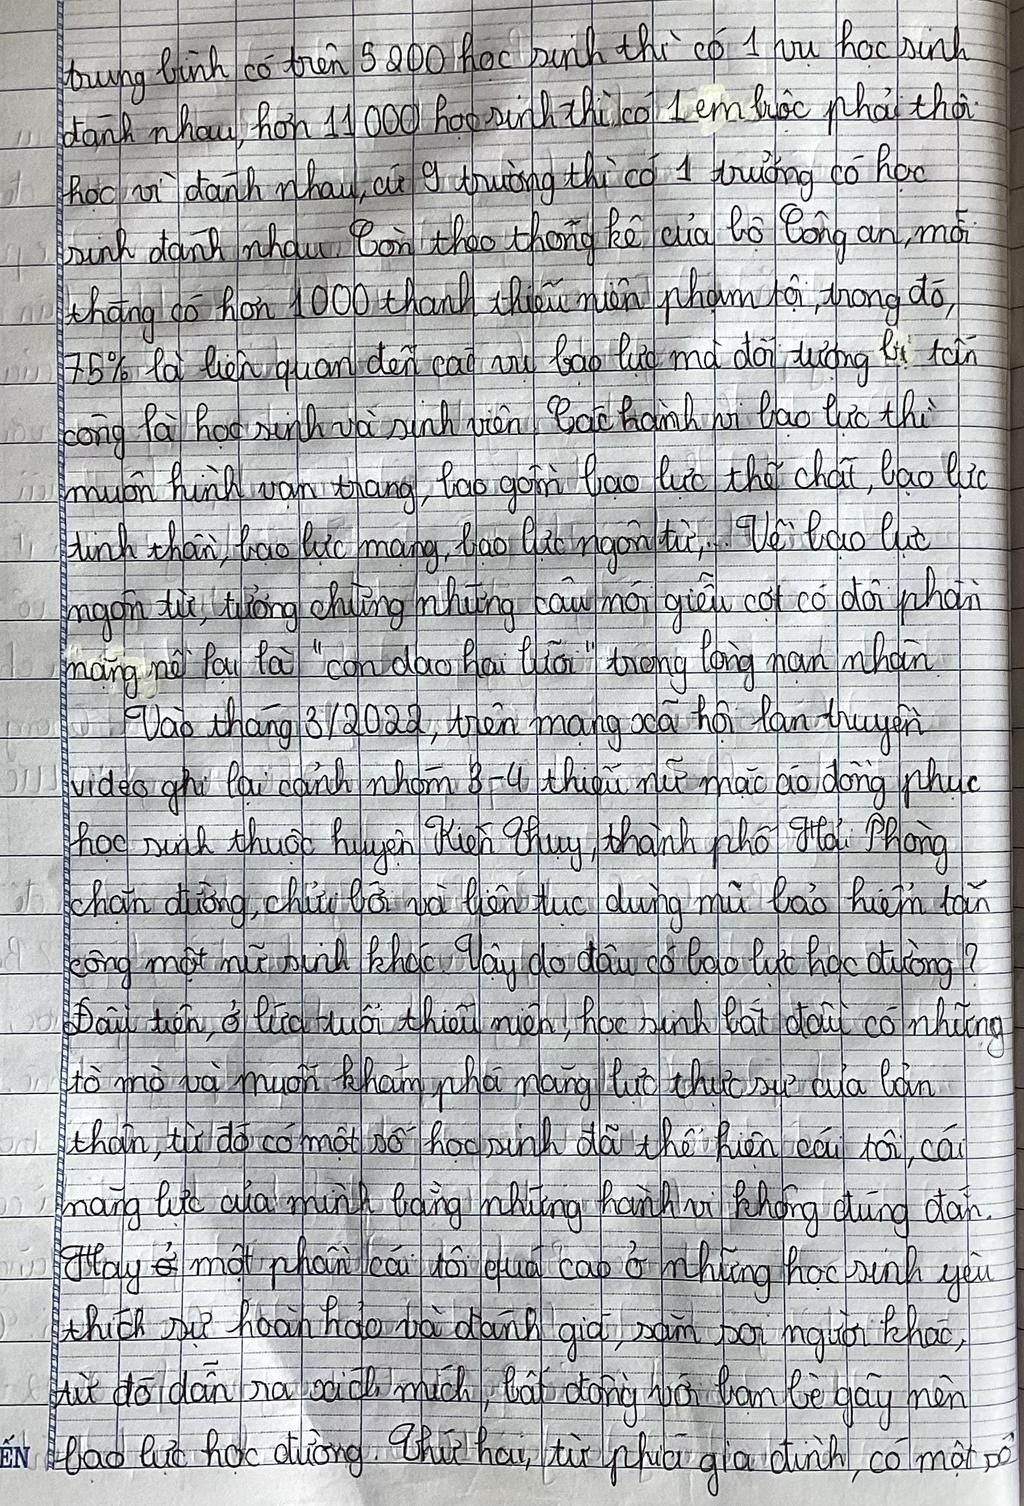 trung bình có trên 5200 học sinh thì có 1 vụ học sinh
đánh nhau, hơn 11000 học sinh thì có 1 em buộc phải thôi
học vì đánh nhau, cứ 9 trường thì có 1 trường có học
sinh đánh nhau. Còn theo thống kê của bộ Công an, mỗi
tháng có hơn 1000 thanh thiếu niên phạm tội, trong đó,
75% là liên quan đến các vụ bạo lực mà đối tượng bị tấn
công là học sinh và sinh viên. Các hành vi bạo lực thì
muôn hình vạn trạng, bao gồm bạo lực thể chất, bạo lực
tinh thần, bạo lực mạng, bạo lực ngôn từ,... Về bạo lực
ngôn từ, tưởng chừng những câu nói giễu cợt có đôi phần
nặng nề lại là "con dao hai lưỡi" trong lòng nạn nhân
Vào tháng 3/2022, trên mạng xã hội lan truyền
video ghi lại cảnh nhóm 3-4 thiếu nữ mặc áo đồng phục
học sinh thuộc huyện Kiến Thụy, thành phố Hải Phòng
chặn đường, chửi bới và liên tục dùng mũ bảo hiểm tấn
công một nữ sinh khác. Vậy do đâu có bạo lực học đường?
Đầu tiên, ở lứa tuổi thiếu niên, học sinh bắt đầu có những
tò mò và muốn khám phá năng lực thực sự của bản
thân, từ đó có một số học sinh đã thể hiện cái tôi, cái
năng lực của mình bằng những hành vi không đúng đắn.
Hay ở một phần cái tôi quá cao ở những học sinh yêu
thích sự hoàn hảo và đánh giá, săm soi người khác,
từ đó dẫn ra xích mích, bất đồng với bạn bè gây nên
ẾN bạo lực học đường. Thứ hai, từ phía gia đình, có một số